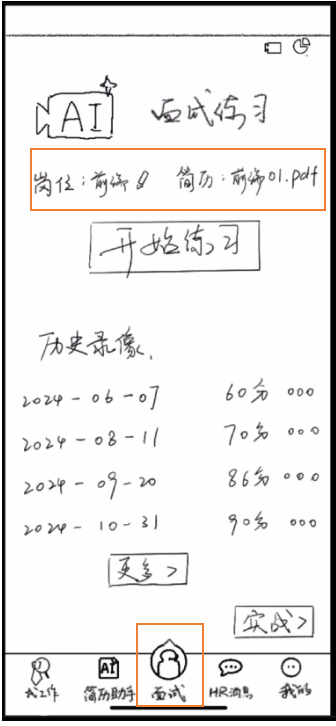 AI 面试练习
岗位：前端 简历：前端01.pdf
开始练习
历史录像.
2024-06-07 60分 ooo
2024-08-11 70分 ooo
2024-09-20 86分 ooo
2024-10-31 90分 ooo
更多>
实战>
找工作 AI 简历助手 面试 HR消息 我的